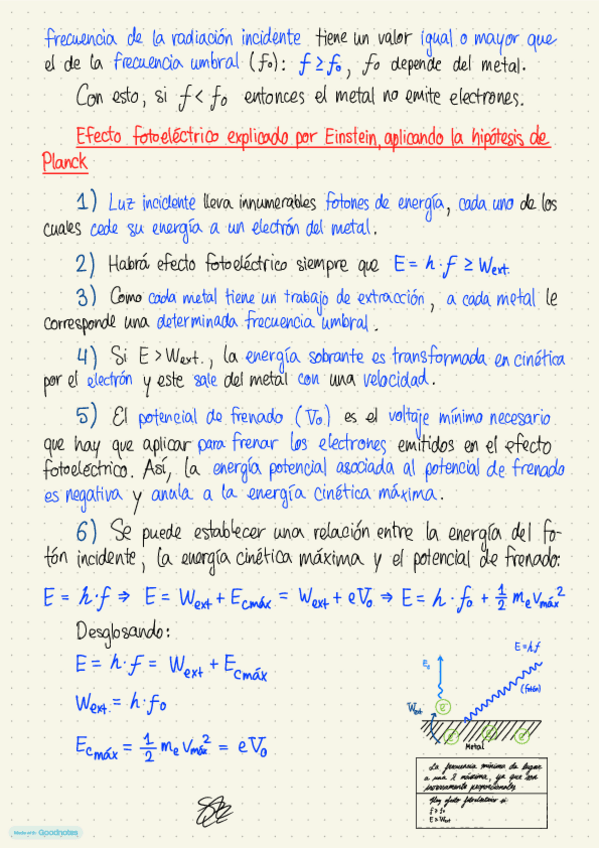 frecuencia de la radiación incidente tiene un valor igual o mayor que
el de la frecuencia umbral (f₀): f ≥ f₀, f₀ depende del metal.
Con esto, si f < f₀ entonces el metal no emite electrones.
Efecto fotoeléctrico explicado por Einstein, aplicando la hipótesis de
Planck
1) Luz incidente lleva innumerables fotones de energía, cada uno de los
cuales cede su energía a un electrón del metal.
2) Habrá efecto fotoeléctrico siempre que E = h · f ≥ Wext.
3) Como cada metal tiene un trabajo de extracción, a cada metal le
corresponde una determinada frecuencia umbral.
4) Si E > Wext., la energía sobrante es transformada en cinética
por el electrón y este sale del metal con una velocidad.
5) El potencial de frenado (V₀) es el voltaje mínimo necesario
que hay que aplicar para frenar los electrones emitidos en el efecto
fotoeléctrico. Así, la energía potencial asociada al potencial de frenado
es negativa y anula a la energía cinética máxima.
6) Se puede establecer una relación entre la energía del fo-
tón incidente, la energía cinética máxima y el potencial de frenado:
E = h·f ⇒ E = Wext + Ecmáx = Wext + eV₀ ⇒ E = h · f₀ + 1/2 me vmáx²
Desglosando:
E = h·f = Wext + Ecmáx
Wext. = h·f₀
Ecmáx = 1/2 me vmáx² = eV₀
E = h·f
Ec
(fotón)
Wext
Metal
La frecuencia mínima da lugar
a una λ máxima, ya que son
inversamente proporcionales
Hay efecto fotoeléctrico si
f > f₀
E > Wext
Made with Goodnotes